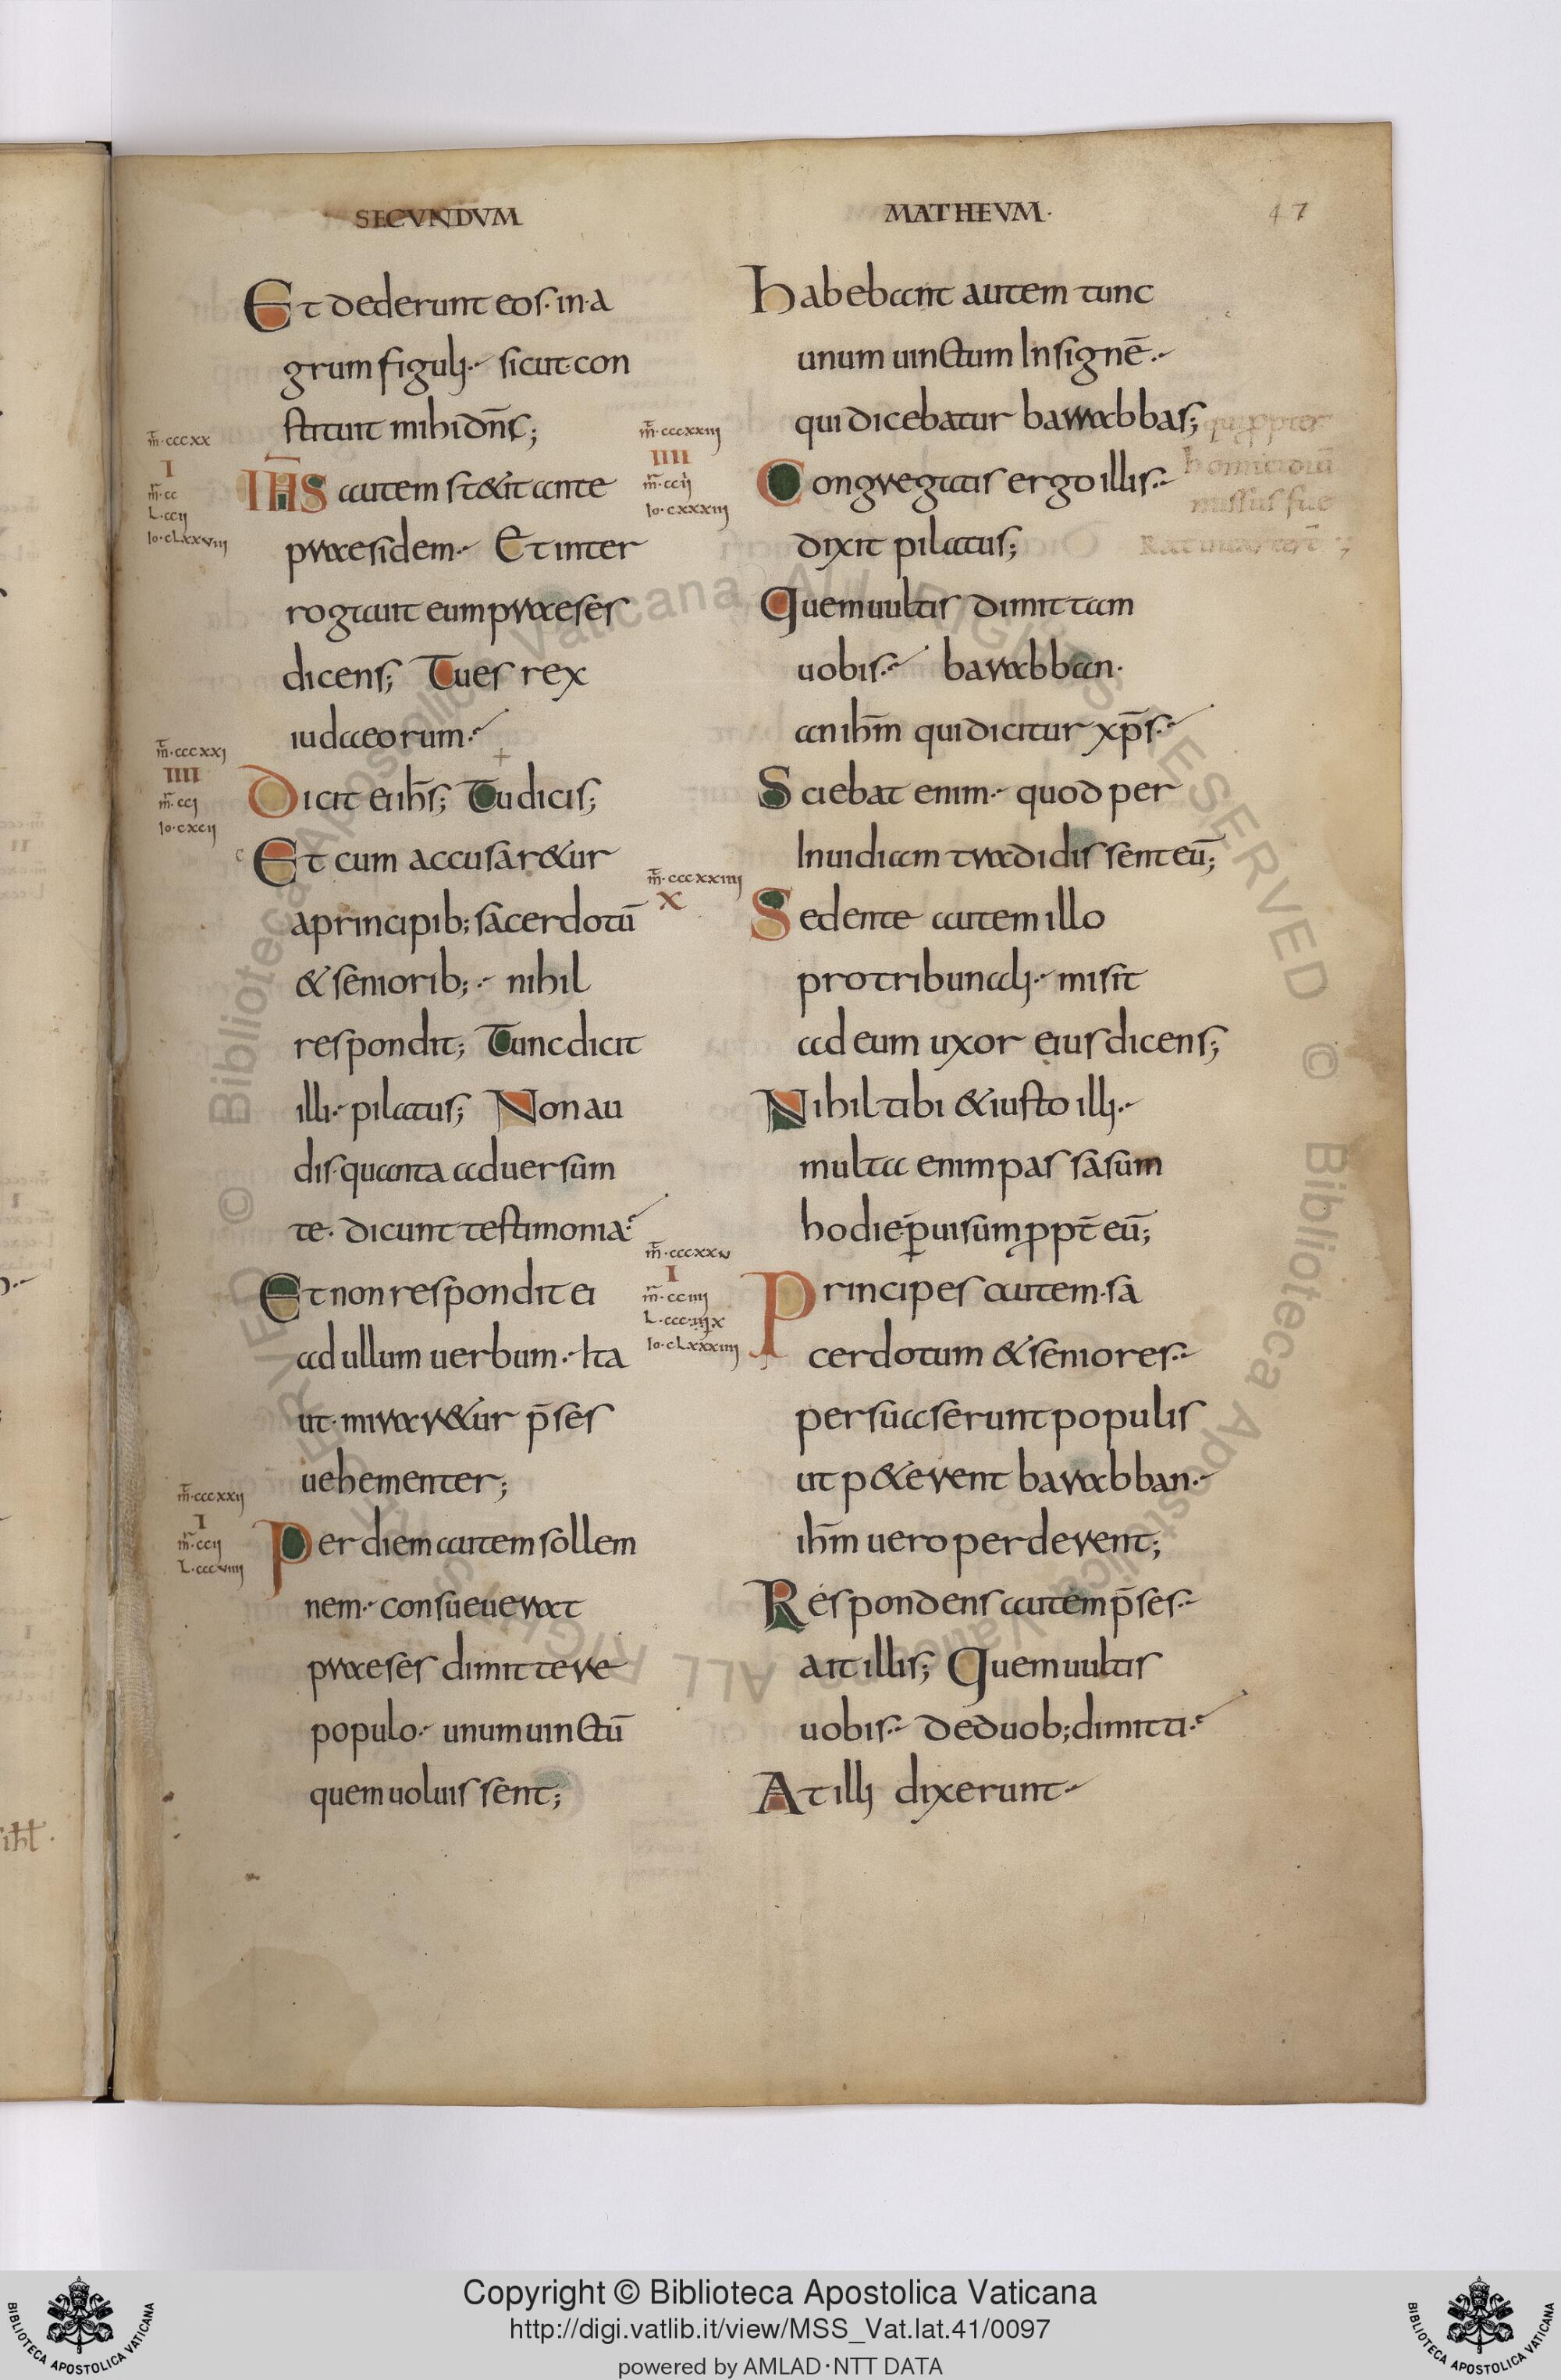 SECVNDVM
MATHEVM·
47
Et dederunt eos· in· a
grum figuli·- sicut· con
stituit mihi dn̄s;
m̄·cccxx
I
m̄·cc
L·ccij
Io·cLxxviij
IH̄S autem stetit ante
praesidem·- Et inter
rogauit eum praeses
dicens; Tu es rex
iudaeorum·
m̄·cccxxj
IIII
m̄·ccj
Io·cxcij
Dicit ei ih̄s; Tu dicis;
Et cum accusar&ur
a principib; sacerdotū
& seniorib;·- nihil
respondit; Tunc dicit
illi·- pilatus; Non au
dis· quanta aduersum
te· dicunt testimonia·
Et non respondit ei
ad ullum uerbum·- Ita
ut· mirar&ur p̄ses
uehementer;
m̄·cccxxij
I
m̄·ccij
L·cccviiij
Per diem autem sollem
nem·- consueuerat
praeses dimittere
populo·- unum uinctū
quem uoluissent;
m̄·cccxxiij
IIII
m̄·ccij
Io·cxxxiij
Habebant autem tunc
unum uinctum Insignē·-
qui dicebatur barrabbas;
qui ppter
homicidiū
missus fue
rat in carcerē;
Congregatis ergo illis·-
dixit pilatus;
Quem uultis dimittam
uobis·- barabban·
an ih̄m qui dicitur xp̄s·
Sciebat enim·- quod per
Inuidiam tradidissent eū;
m̄·cccxxiiij
X
Sedente autem illo
pro tribunali·- misit
ad eum uxor eius dicens;
Nihil tibi & iusto illi·-
multa enim passa sum
hodie p uisum ppt̄ eū;
m̄·cccxxv
I
m̄·cciiij
Io·cLxxxiiij
Principes autem· sa
cerdotum & seniores·-
persuaserunt populis
ut p&erent barabban·-
ih̄m uero perderent;
Respondens autem p̄ses·-
ait illis; Quem uultis
uobis·- de duob; dimitti·
At illi dixerunt·-
Copyright © Biblioteca Apostolica Vaticana
http://digi.vatlib.it/view/MSS_Vat.lat.41/0097
powered by AMLAD·NTT DATA
BIBLIOTECA APOSTOLICA VATICANA
BIBLIOTECA APOSTOLICA VATICANA
© Biblioteca Apostolica Vaticana ALL RIGHTS RESERVED © Biblioteca Apostolica Vaticana ALL RIGHTS RESERVED